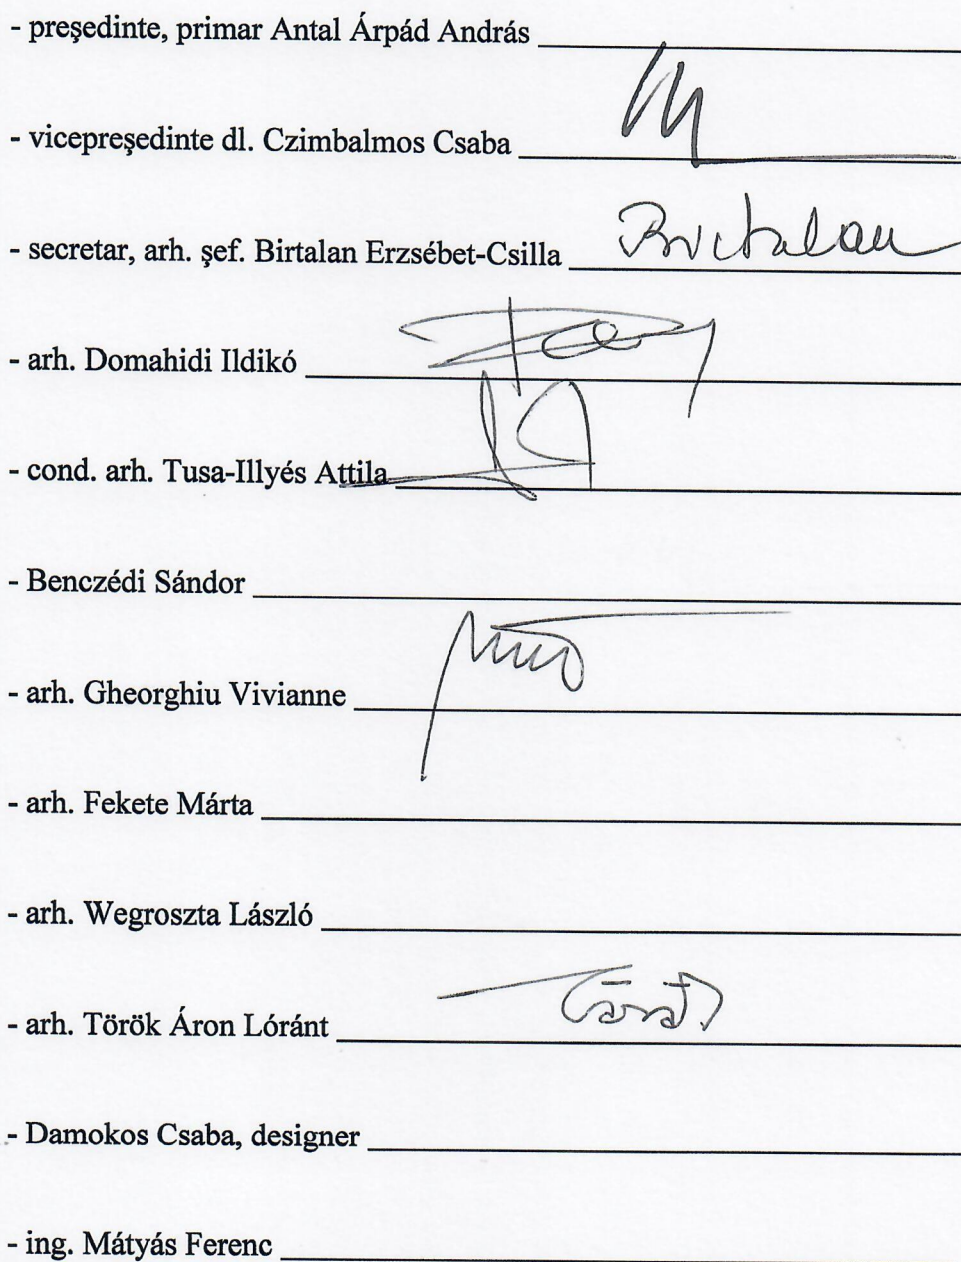 - preşedinte, primar Antal Árpád András
- vicepreşedinte dl. Czimbalmos Csaba
- secretar, arh. şef. Birtalan Erzsébet-Csilla Birtalan
- arh. Domahidi Ildikó
- cond. arh. Tusa-Illyés Attila
- Benczédi Sándor
- arh. Gheorghiu Vivianne
- arh. Fekete Márta
- arh. Wegroszta László
- arh. Török Áron Lóránt
- Damokos Csaba, designer
- ing. Mátyás Ferenc